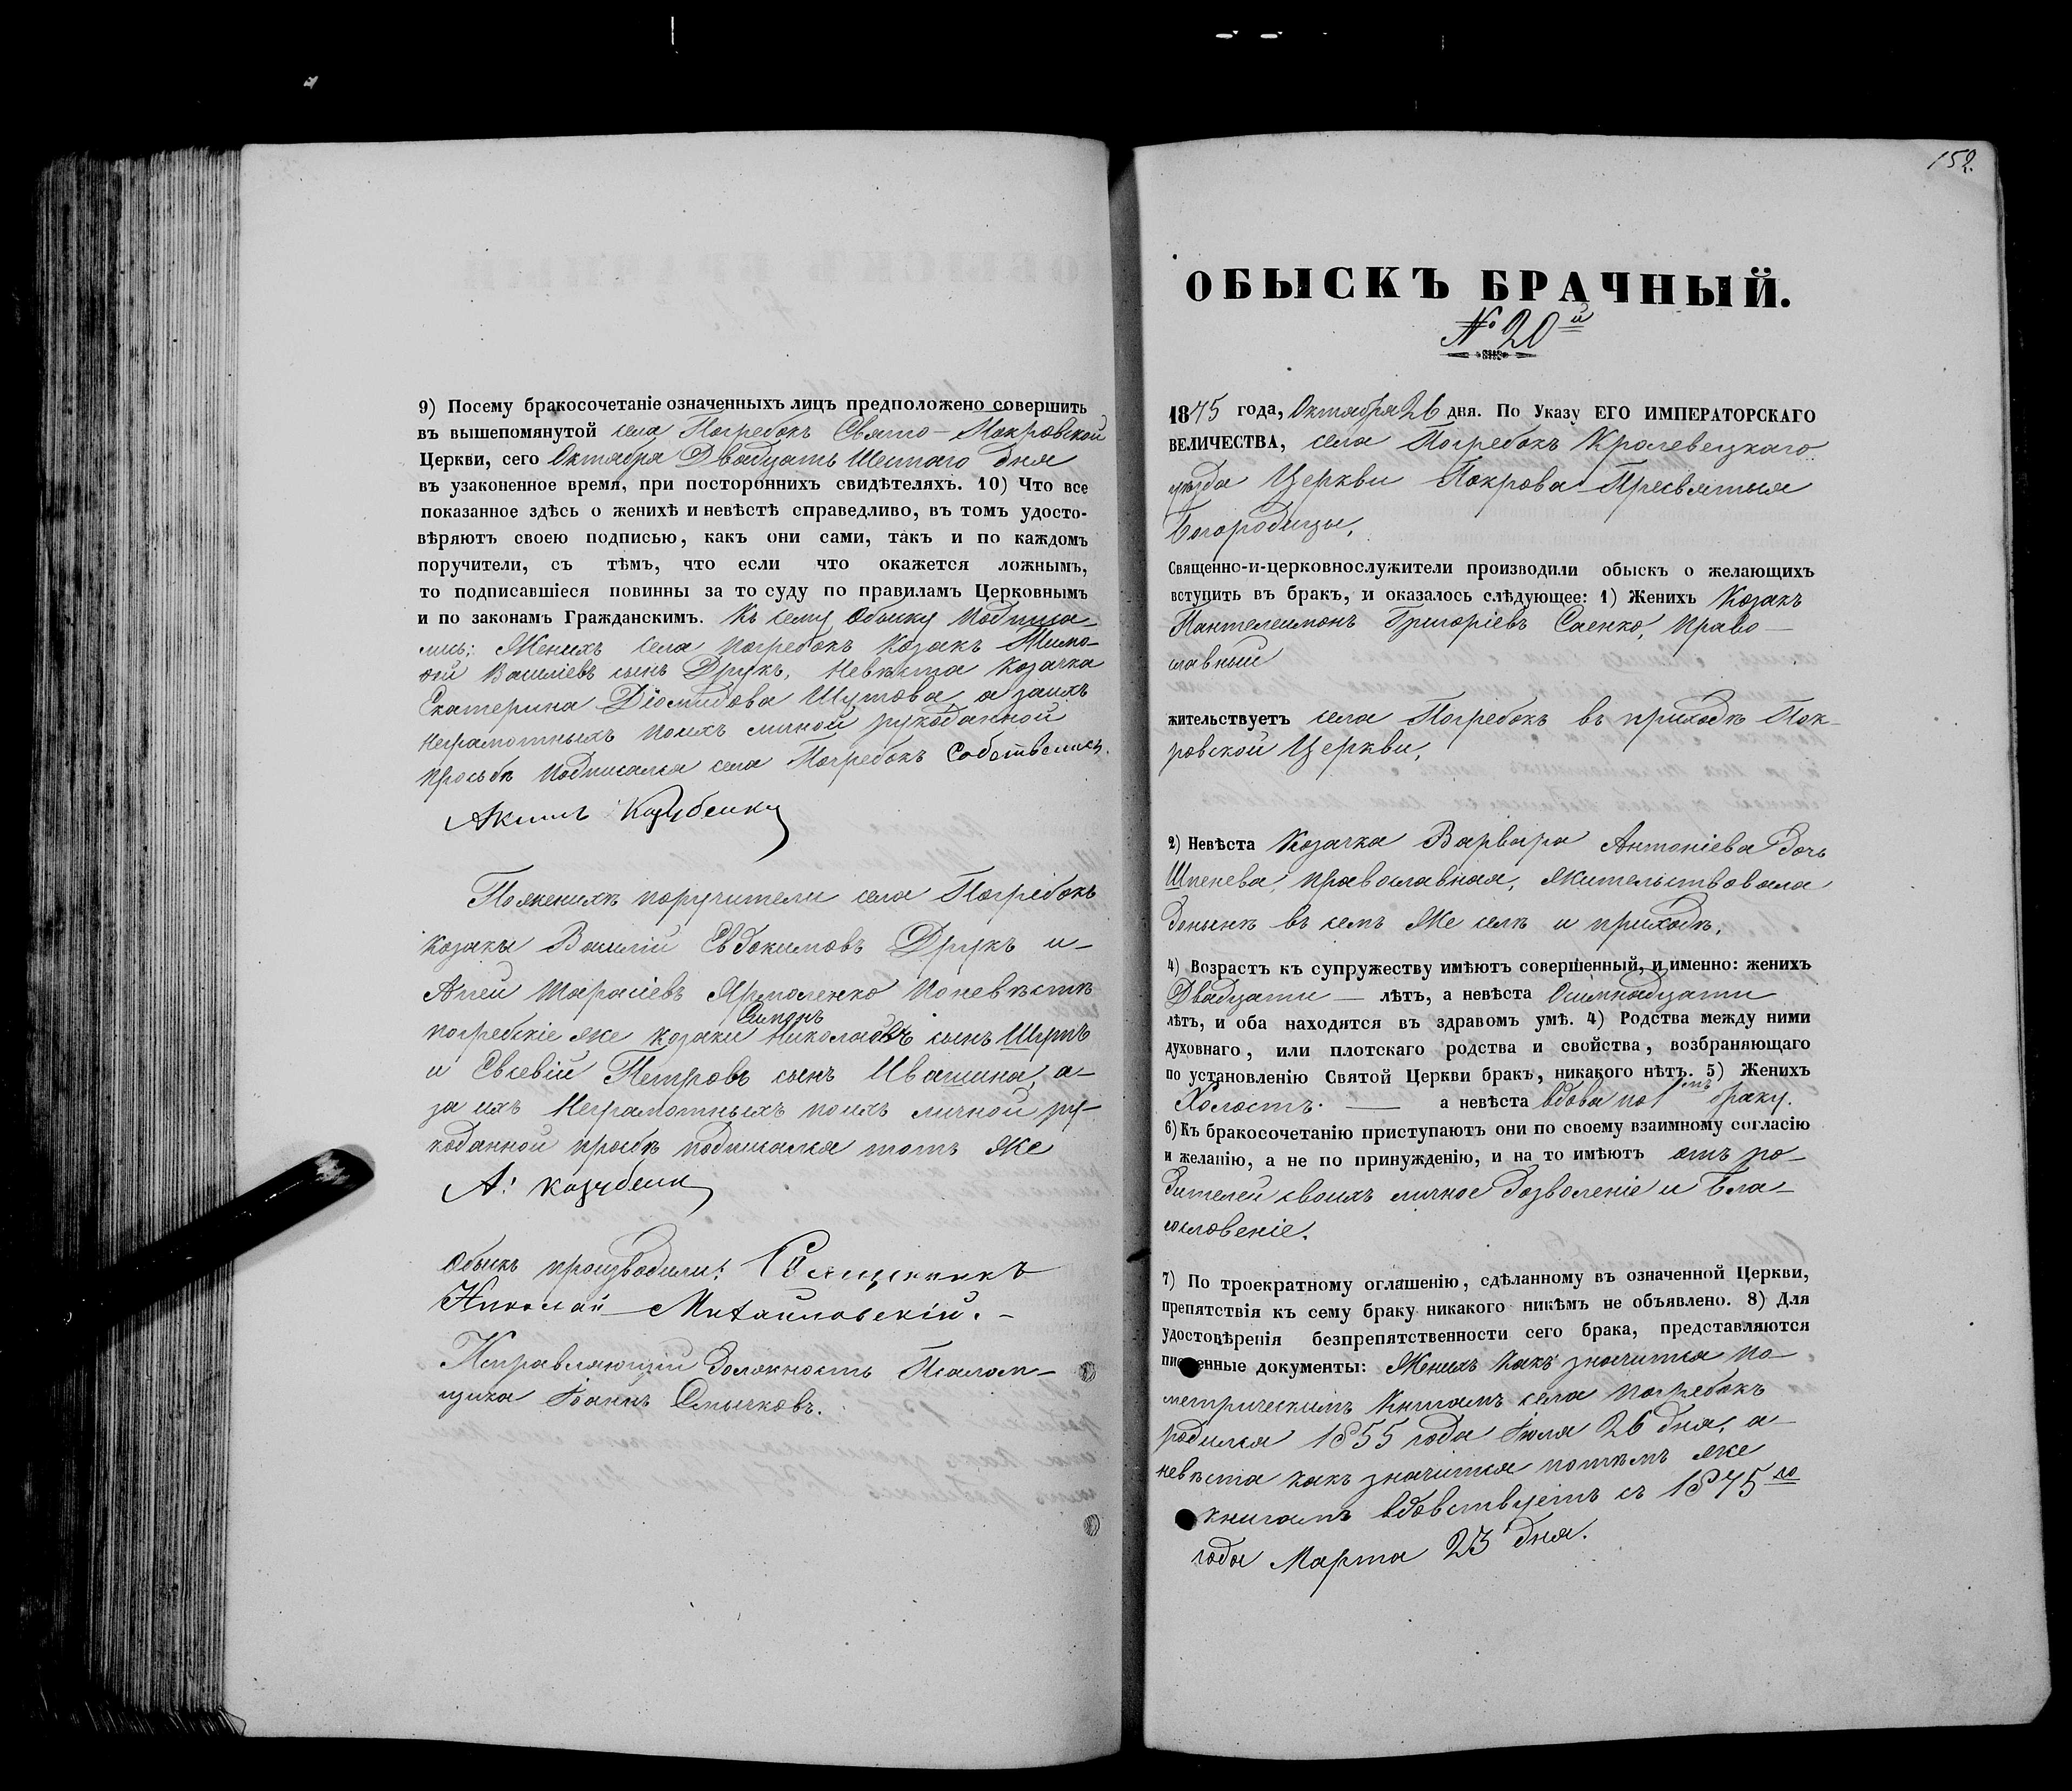 9) Посему бракосочетаніе означенныхъ лицъ предположено совершить
въ вышепомянутой села Погребокъ Свято-Покровской
Церкви, сего Октября Двадцать Шестаго дня
въ узаконенное время, при постороннихъ свидѣтеляхъ. 10) Что все
показанное здѣсь о женихѣ и невѣстѣ справедливо, въ томъ удосто-
вѣряютъ своею подписью, какъ они сами, такъ и по каждомъ
поручители, съ тѣмъ, что если что окажется ложнымъ,
то подписавшіеся повинны за то суду по правиламъ Церковнымъ
и по законамъ Гражданскимъ. Къ сему Обыску Подписа-
лись: Женихъ села Погребокъ Козакъ Тимо-
фій Василіевъ сынъ Друкъ, Невѣста Козачка
Екатерина Діомидова Шутова, а заихъ
неграмотныхъ поихъ личной рукоданной
просьбѣ Подписался села Погребокъ
Акимъ
Поженихѣ поручители села Погребокъ
козаки Василій Евдокимовъ Друкъ и-
Тарасіевъ Ярмоленко Поневѣстѣ
Симонъ
погребскіе же козаки Николаевъ сынъ Шутъ
и Евсевій Петровъ сынъ Ивашина, а-
за ихъ Неграмотныхъ поихъ личной ру-
коданной прозбѣ подписался тотъ же
А:
Обыкъ производили: Священникъ
Николай Михайловскій. -
Исправляющій должность Псалом-
щика Іоаннъ Смычковъ.
152.
ОБЫСКЪ БРАЧНЫЙ.
№ 20й
1875 года, Октября 26 дня. По Указу ЕГО ИМПЕРАТОРСКАГО
ВЕЛИЧЕСТВА, села Погребокъ Кролевецкаго
уѣзда Церкви Покрова Пресвятыя
Богородицы,
Священно-и-церковнослужители производили обыскъ о желающихъ
вступить въ бракъ, и оказалось слѣдующее: 1) Женихъ Козакъ
Пантелеимонъ Григоріевъ Саенко, право-
славный
жительствуетъ села Погребокъ въ приходѣ Пок-
ровской Церкви,
2) Невѣста Козачка Варвара Антоніева Дочь
Шпенева, православная, жительствовала
донынѣ въ семъ же селѣ и приходѣ.
4) Возрастъ къ супружеству имѣютъ совершенный, и именно: женихъ
Двадцати — лѣтъ, а невѣста Осимнадцати
лѣтъ, и оба находятся въ здравомъ умѣ. 4) Родства между ними
духовнаго, или плотскаго родства и свойства, возбраняющаго
по установленію Святой Церкви бракъ, никакого нѣтъ. 5) Женихъ
Холостъ. — а невѣста вдова по 1мъ браку.
6) Къ бракосочетанію приступаютъ они по своему взаимному согласію
и желанію, а не по принужденію, и на то имѣютъ отъ ро-
дителей своихъ личное дозволеніе и Бла-
гословеніе.
7) По троекратному оглашенію, сдѣланному въ означенной Церкви,
препятствія къ сему браку никакого никѣмъ не объявлено. 8) Для
удостовѣренія безпрепятственности сего брака, представляются
письменные документы: Женихъ Какъ значится по
метрическимъ Книгамъ села Погребокъ
родился 1855 года Іюля 26 дня, а-
невѣста какъ значится потѣмъ же
книгамъ вдовствуетъ съ 1875го
года Марта 23 дня.